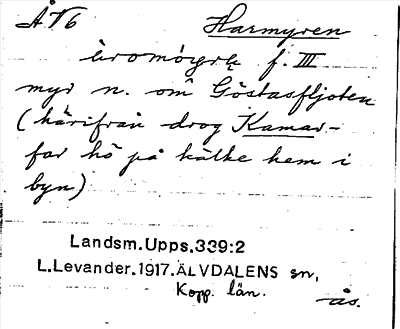 ÅV6 Harmyren
àromóyrę f. III
myr n. om Göstasfljoten
(härifrån drog Kamar-
far hö på kälke hem i
byn)
Landsm.Upps.339:2
L.Levander.1917.ÄLVDALENS sn,
Kopp. län.
ås.